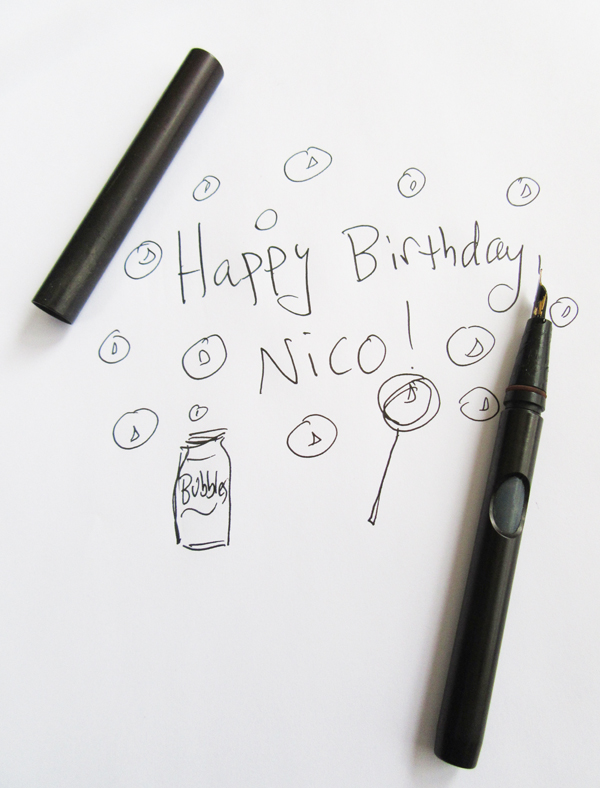 Happy Birthday
Nico!
Bubbles